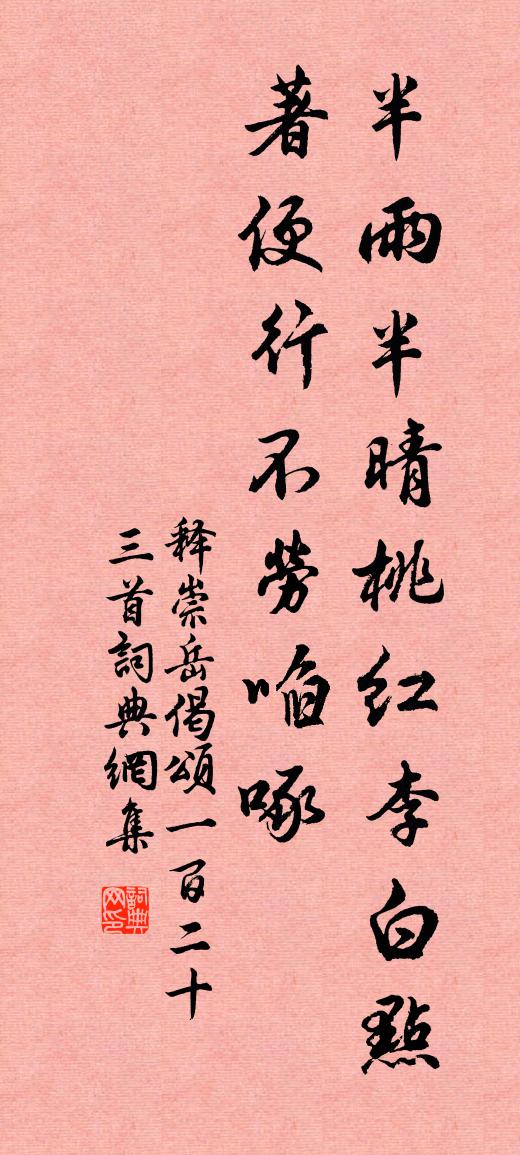 半雨半晴桃红李白點
著便行不勞啗啄
释崇岳偈頌一百二十
三首詞典網集
詞典
网印